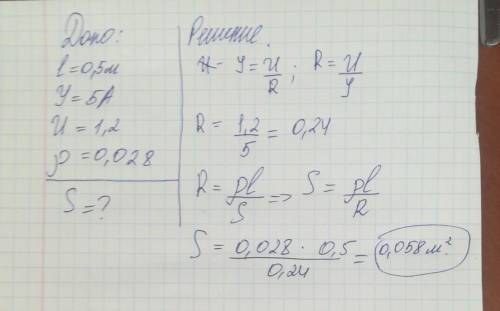 Дано:
l=0,5м
I=5А
U=1,2
ρ=0,028
S=?
Решение.
I=U/R; R=U/I
R=1,2/5=0,24
R=ρl/S=>S=ρl/R
S=0,028·0,5/0,24=0,058м²